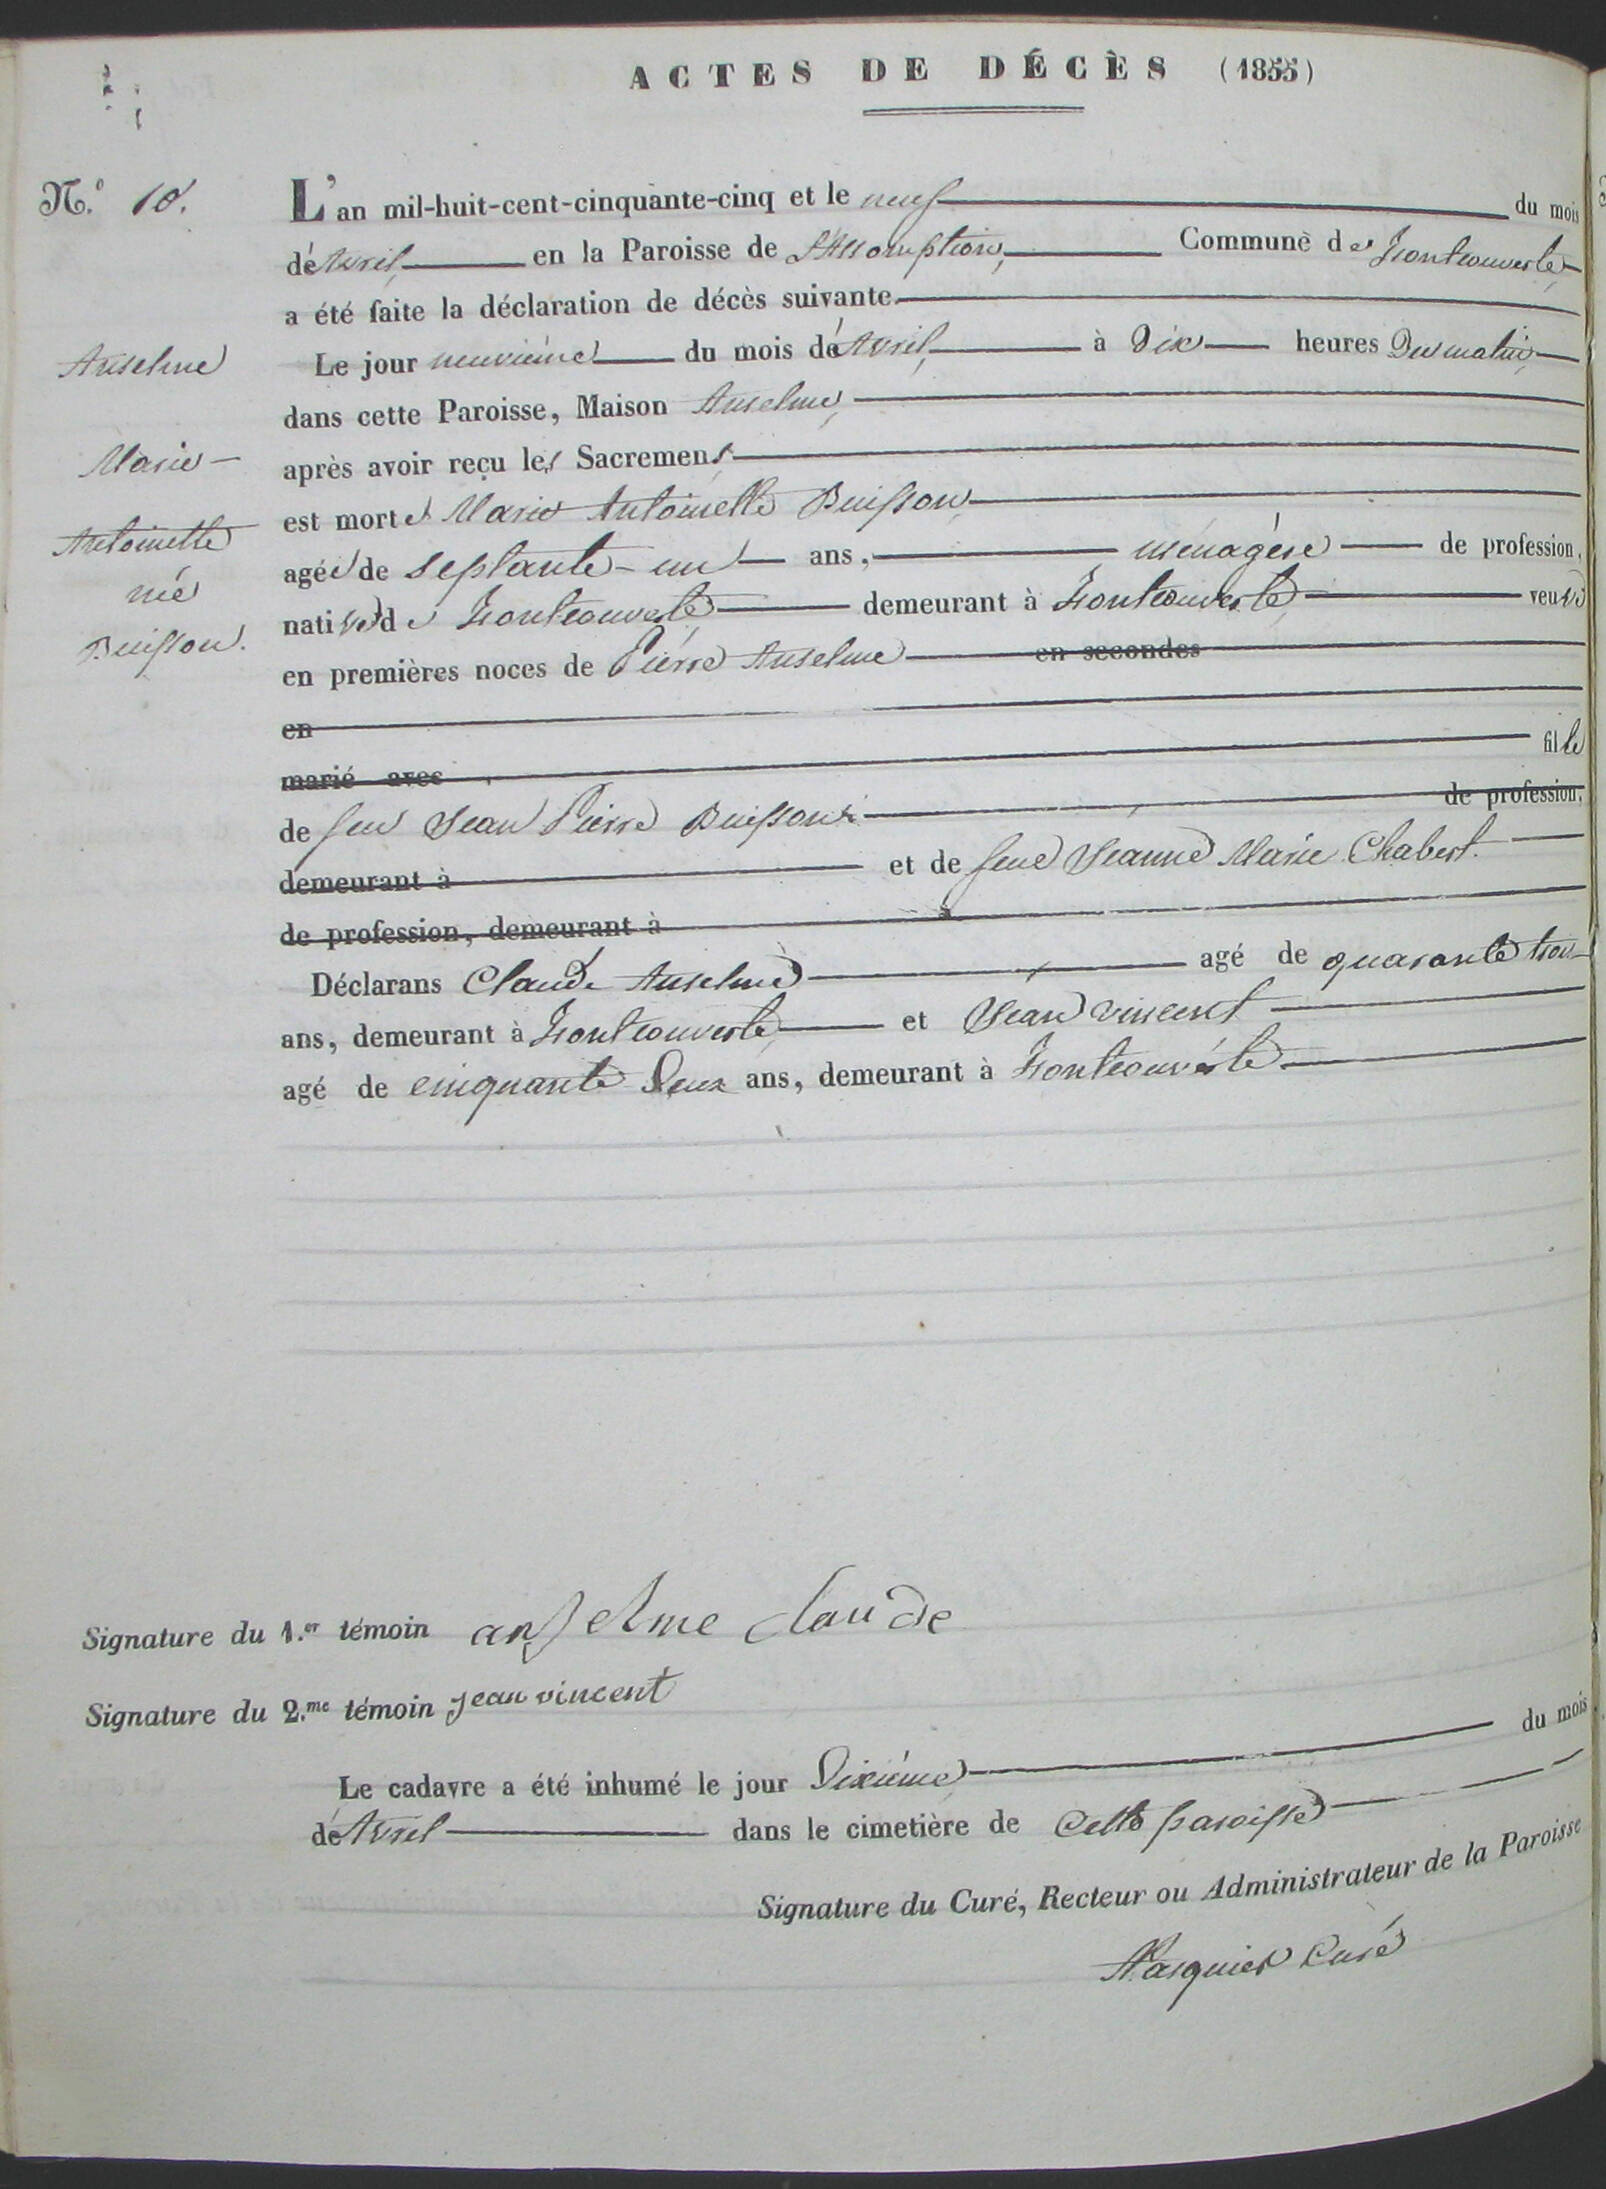 ACTES DE DÉCÈS (1855)
N.º 10.
L'an mil-huit-cent-cinquante-cinq et le neuf du mois
de Avril, en la Paroisse de L'Assomption, Commune de Fontcouverte,
a été faite la déclaration de décès suivante.
Anselme
Le jour neuvième du mois de Avril, à Dix heures Du matin,
dans cette Paroisse, Maison Anselme,
Marie
après avoir reçu les Sacremens
est morte Marie Antoinette Buisson
Antoinette
agée de septante-un ans, ménagère de profession,
née
native de Fontcouverte demeurant à Fontcouverte, veuve
Buisson.
en premières noces de Pierre Anselme en secondes
en
marié avec fille
de feu Jean Pierre Buisson de profession,
demeurant à et de feue Jeanne Marie Chabert.
de profession, demeurant à
Déclarans Claude Anselme agé de quarante trois
ans, demeurant à Fontcouverte et Jean Vincent
agé de cinquante Deux ans, demeurant à Fontcouverte
Signature du 1.er témoin anselme claude
Signature du 2.me témoin jean vincent
Le cadavre a été inhumé le jour Dixième du mois
de Avril dans le cimetière de cette paroisse
Signature du Curé, Recteur ou Administrateur de la Paroisse
Pasquier Curé